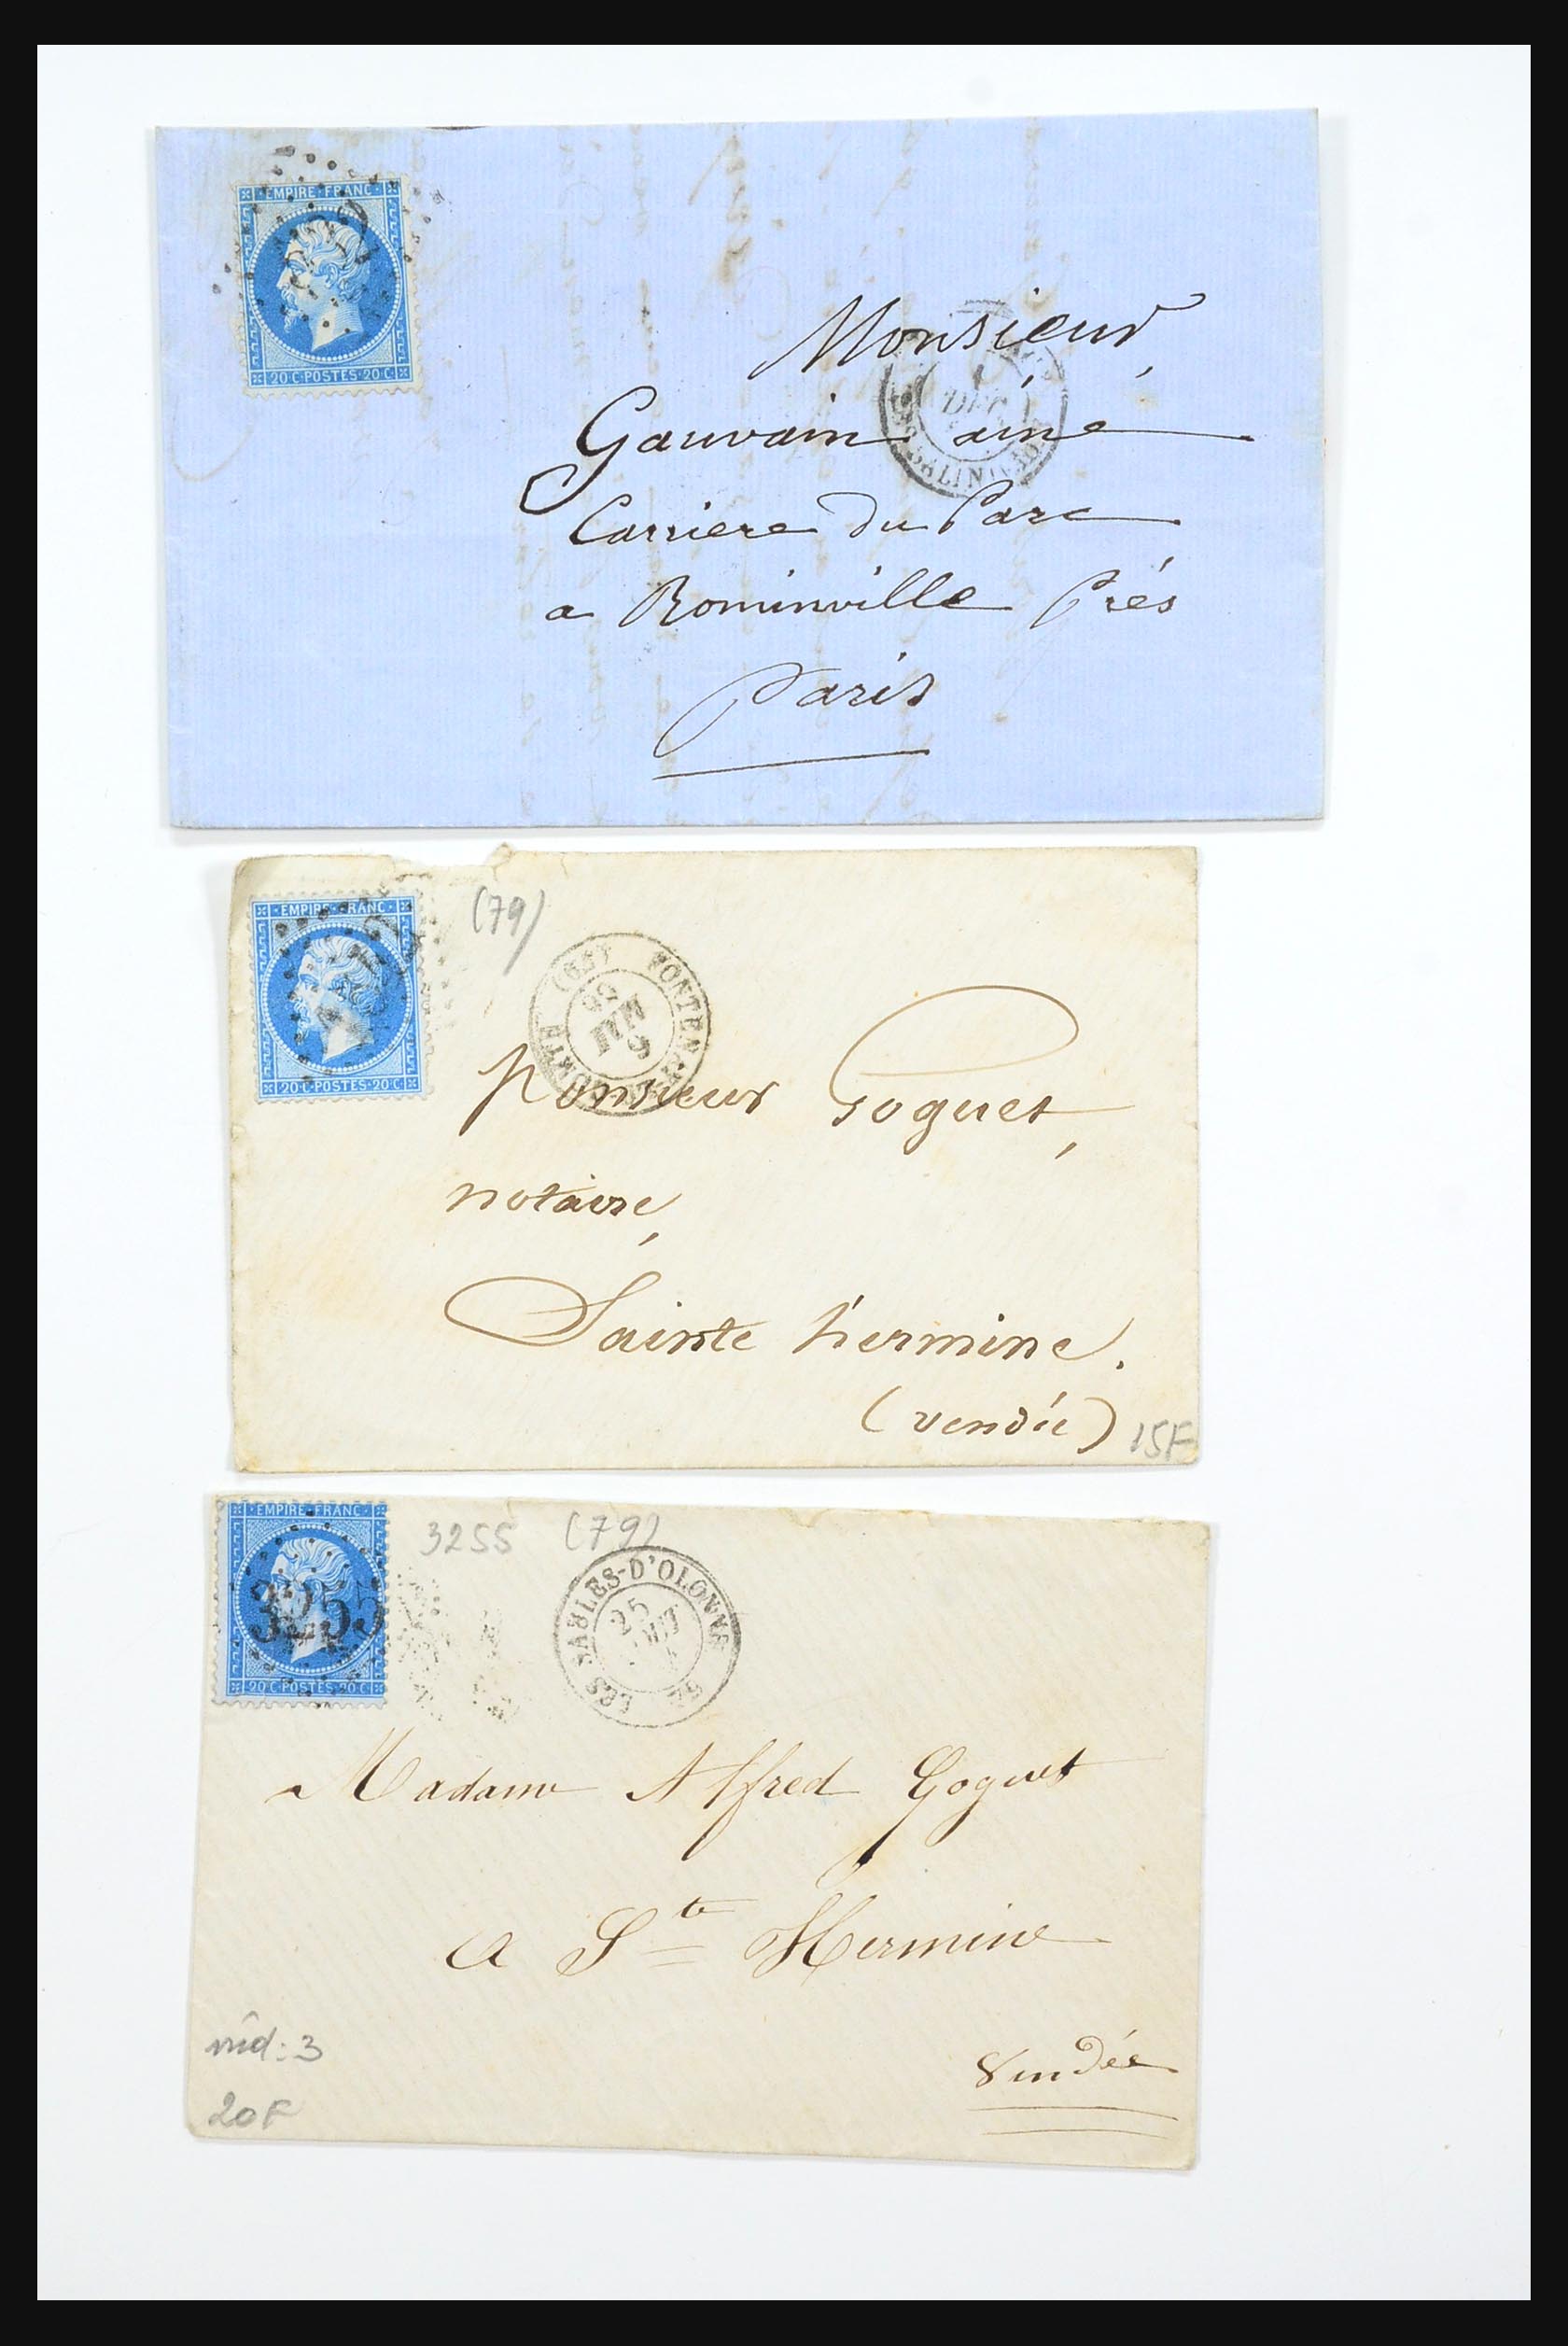 EMPIRE FRANC
20 C POSTES 20 C
Monsieur
DEC
Gauvain ainé
Carriere du Parc
a Rominville Prés
Paris
EMPIRE FRANC
20 C POSTES 20 C
(79)
Monsieur Goguet,
notaire,
Sainte hermine.
(vendée)
15F
EMPIRE FRANC
3255
20 C POSTES 20 C
3255 (79)
LES SABLES-D'OLONNE
25
Madame Alfred Goguet
a Ste Hermine
Vendée
ind: 3
20F